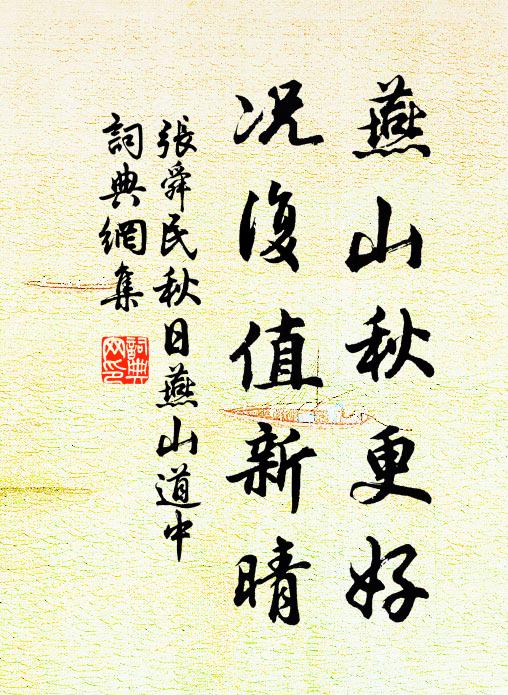 燕山秋更好
况復值新晴
張舜民秋日燕山道中
詞典網集
詞典
网印